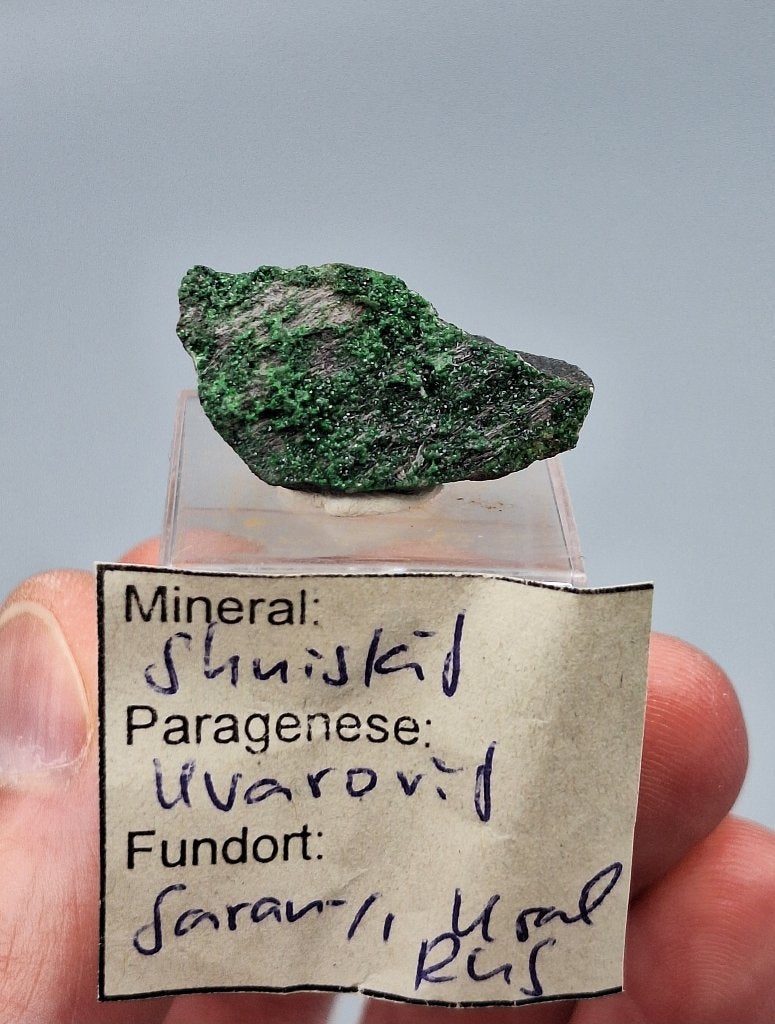 Mineral:
Shuiskit
Paragenese:
Uvarovit
Fundort:
Sarany, Ural
RUS